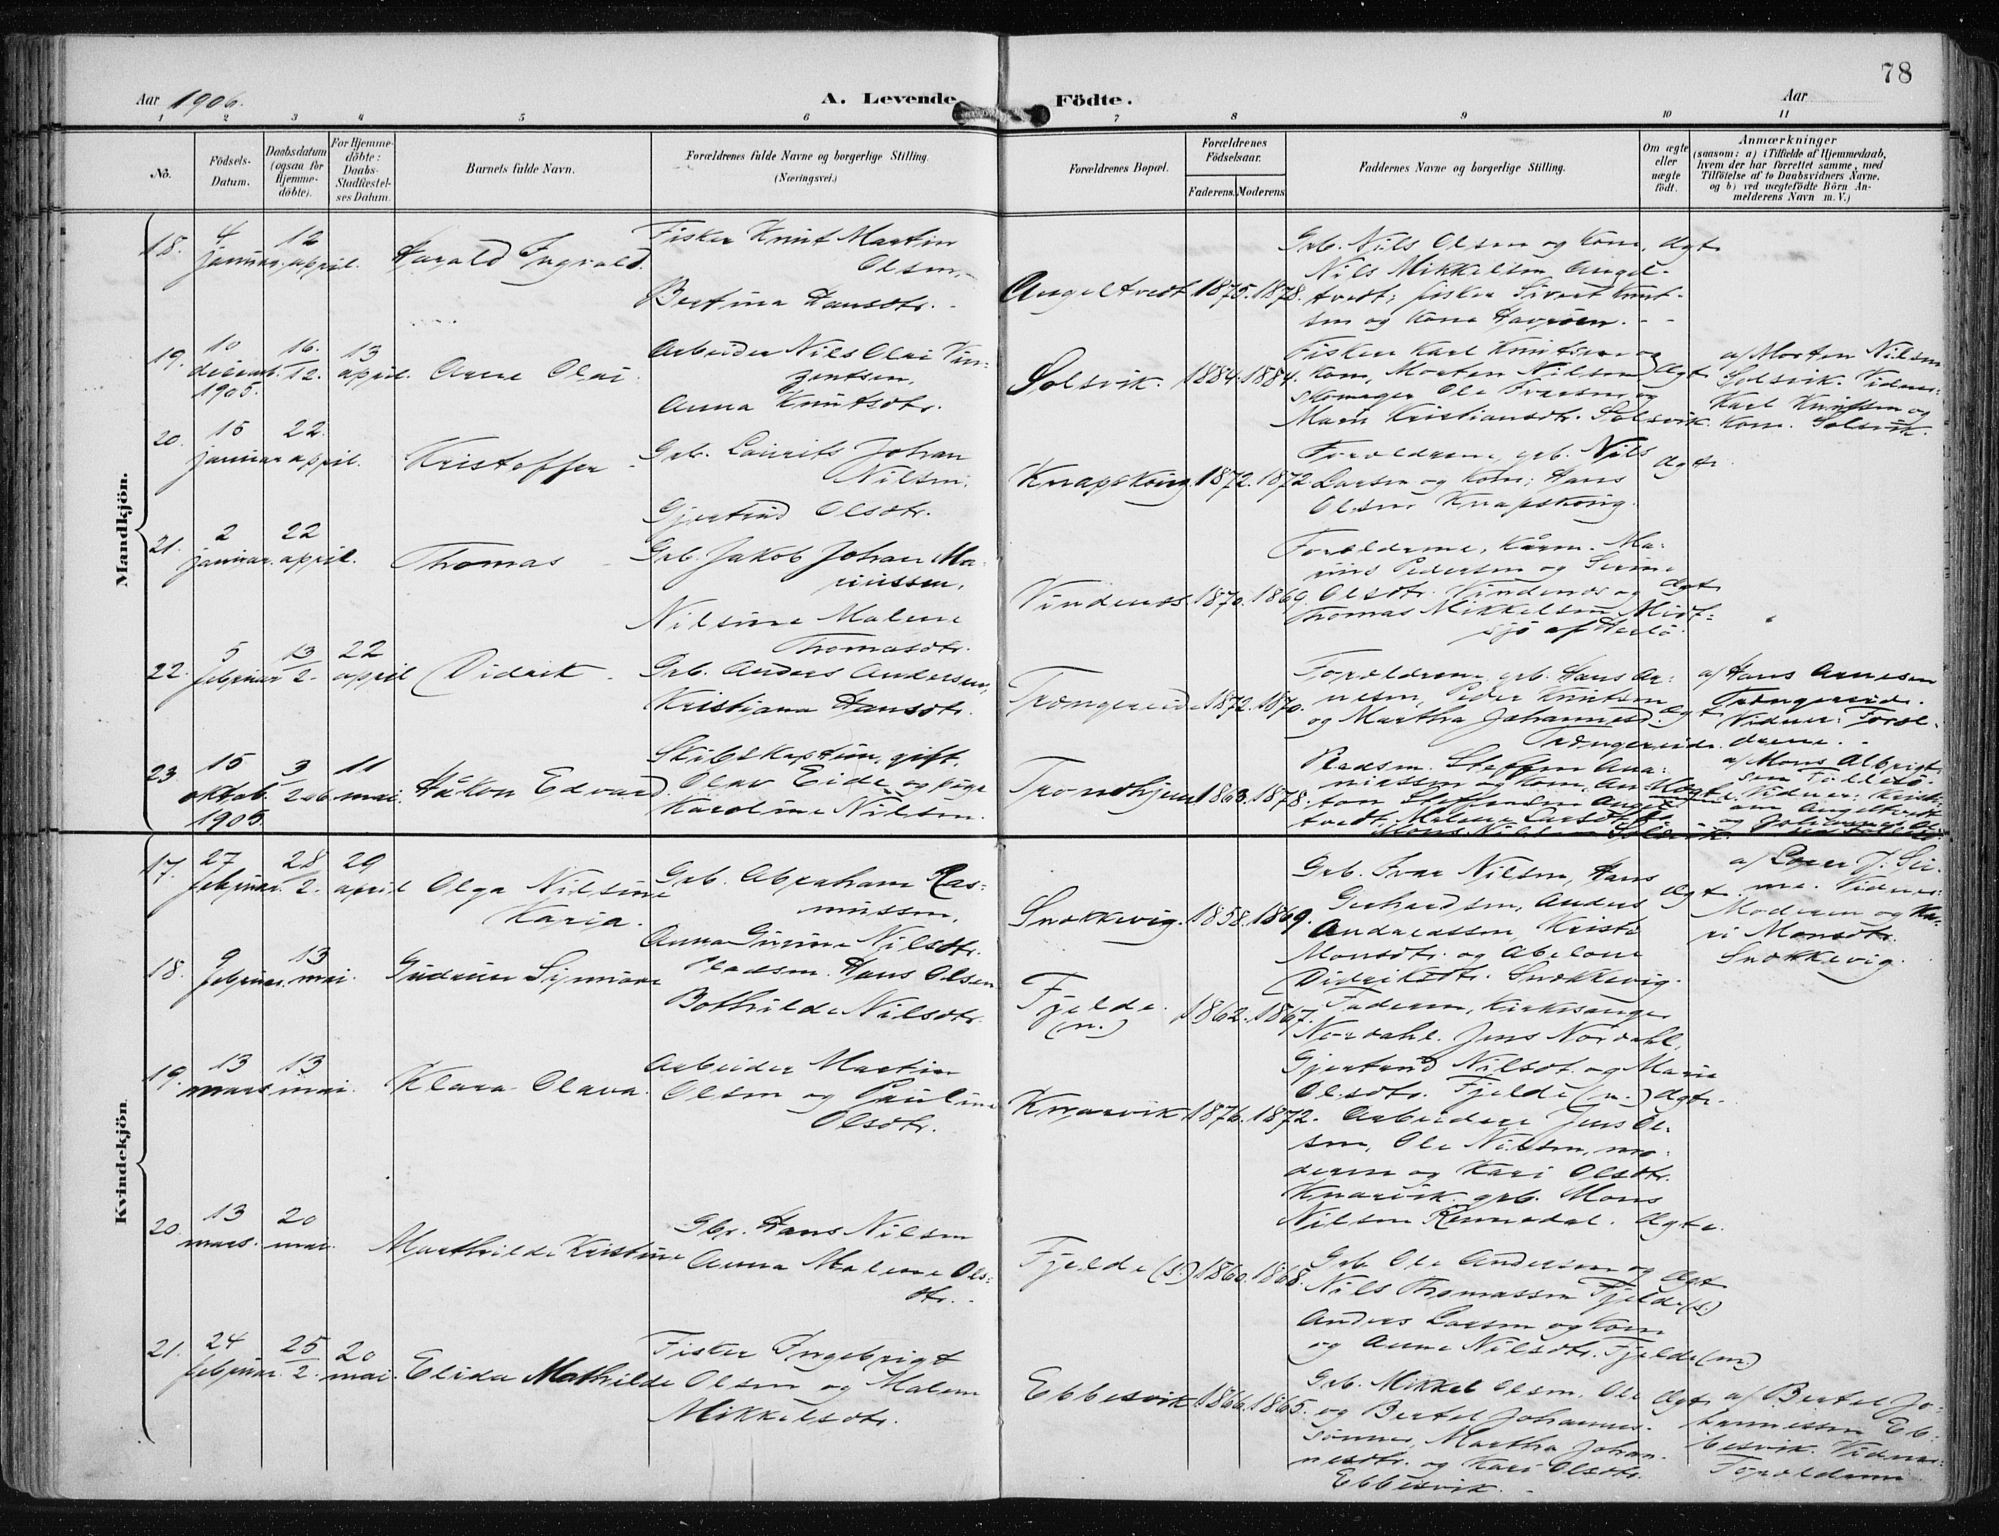 78
Aar 1906.
A. Levende Födte.
Aar
1 2 3 4 5 6 7 8 9 10 11
No.
Födsels-Datum.
Daabsdatum (ogsaa for Hjemme-döbte).
For Hjemme-döbte: Daabs-Stadfæstel-ses Datum.
Barnets fulde Navn.
Forældrenes fulde Navne og borgerlige Stilling.
(Næringsvei.)
Forældrenes Bopæl.
Forældrenes Födselsaar.
Faderens. Moderens.
Faddernes Navne og borgerlige Stilling.
Om ægte eller uægte födt.
Anmærkninger
(saasom: a) i Tilfælde af Hjemmedaab,
hvem der har forrettet samme, med
Tilföielse af to Daabsvidners Navne,
og b) ved uægtefödte Börn An-
melderens Navn m. V.)
Mandkjön.
18. 4 januar. 12 april. Harald Ingvald.
Fisker Knut Martin
Olsen,
Bertina Hansdtr.
Angeltvedt 1875. 1878.
Grb. Nils Olsen og Kone,
Nils Mikkelsen Angel-
tvedt; fisker Sivert Knut-
sen og Kone Havröen.
Ægte
19. 10 decemb. 1905. 16/12. 13 april. Arne Olai
Arbeider Nils Olai Vin-
zentsen,
Anna Knutsdtr.
Solsvik. 1884. 1884.
Fisker Karl Knutsen og
Kone, Morten Nilsen,
skomager Ole Ivarsen og
Mari Kristiansdtr. Solsvik.
Ægte
a/ Morten Nilsen
Solsvik. Vidner:
Karl Knutsen og
Kone. Solsvik.
20. 15 januar 22 april. Kristoffer
Grb. Laurits Johan
Nilsen,
Gjertrud Olsdtr.
Knapskoug 1872. 1872
Forældrene, grb. Nils
Larsen og Kone; Hans
Olsen Knapskoug.
Ægte
21. 2 januar. 22 april. Thomas
Grb. Jakob Johan Ma-
rinssen,
Nilsine Malene
Thomasdtr.
Vindenes. 1870. 1869.
Forældrene, Kårm. Ma-
rius Pedersen og Serine
Olsdtr. Vindenes og
Thomas Mikkelsen Midt-
sjö af Herlö.
Ægte
22. 5 februar 13/2. 22 april Didrik
Grb. Anders Andersen,
Kristiana Hansdtr.
Trængereide 1872. 1870.
Forældrene, grb. Hans Ar-
nesen, Peder Knutsen
og Martha Johannesd.
Trængereide.
Ægte
a/ Hans Arnesen
Trængereide.
Vidner: Foræl-
drene.
23 15 oktob. 1905. 3/2 06 11 mai. Håkon Edvard
Skibskaptein, gift,
Olav Eide og pige
Karoline Nilsen.
Trondhjem 1863. 1878.
Kvindekjön.
17. 27 februar. 28/2. 29 april Olga Nilsine
Karja.
Grb. Abraham Ras-
mussen,
Anna Gurine Nilsdtr.
Snekkevig. 1858. 1869.
Grb. Ivar Nilsen, Hans
Gerhardsen, Anders
Andreassen Kristi
Monsdtr. og Abelone
Didriksdtr. Snekkevig.
Ægte
Vidner:
Moderen og Ka-
ri Monsdtr.
Snekkevig.
18. 9 februar. 13 mai. Gudrun Synnöve
Pladsm. Hans Olsen
Bothilde Nilsdtr.
Fjelde. (n.) 1862. 1867.
Faderen, Kirkesanger
Nordahl. Jens Nordahl,
Gjertrud Nilsdt. og Marie
Olsdtr. Fjelde (n.) Ægte.
19. 13 mars 13 mai. Klara Olava.
Arbeider Martin
Olsen og Pauline
Olsdtr.
Knarvik 1876. 1872.
Arbeidere Jens Ol-
sen, Ole Nilsen, mo-
deren og Kari Olsdtr.
Knarvik grb. Mons
Nilsen Rennedal. Ægte.
20. 13 mars. 20 mai. Marthilde Kristine
Gbr. Hans Nilsen
Anna Malene Ols-
dtr.
Fjelde (s.) 1860. 1868.
Grb. Ole Andersen og
Nils Thomassen Fjelde (s.)
Anders Larsen og Kone
og Anne Nilsdtr. Fjelde (n.)
Ægte
21. 24 februar. 25/2. 20 mai. Elida Mathilde
Fisker Ingebrigt
Olsen og Malene
Mikkelsdtr.
Ebbesvik 1866. 1865.
Grb. Mikkel Olsen, Ole
og Bertel Johannes-
sönner, Martha Johan-
nesdtr. og Kari Olsdtr.
Ebbesvik.
Ægte
a/ Bertel Jo-
hannessen Eb-
besvik. Vidner:
Forældrene